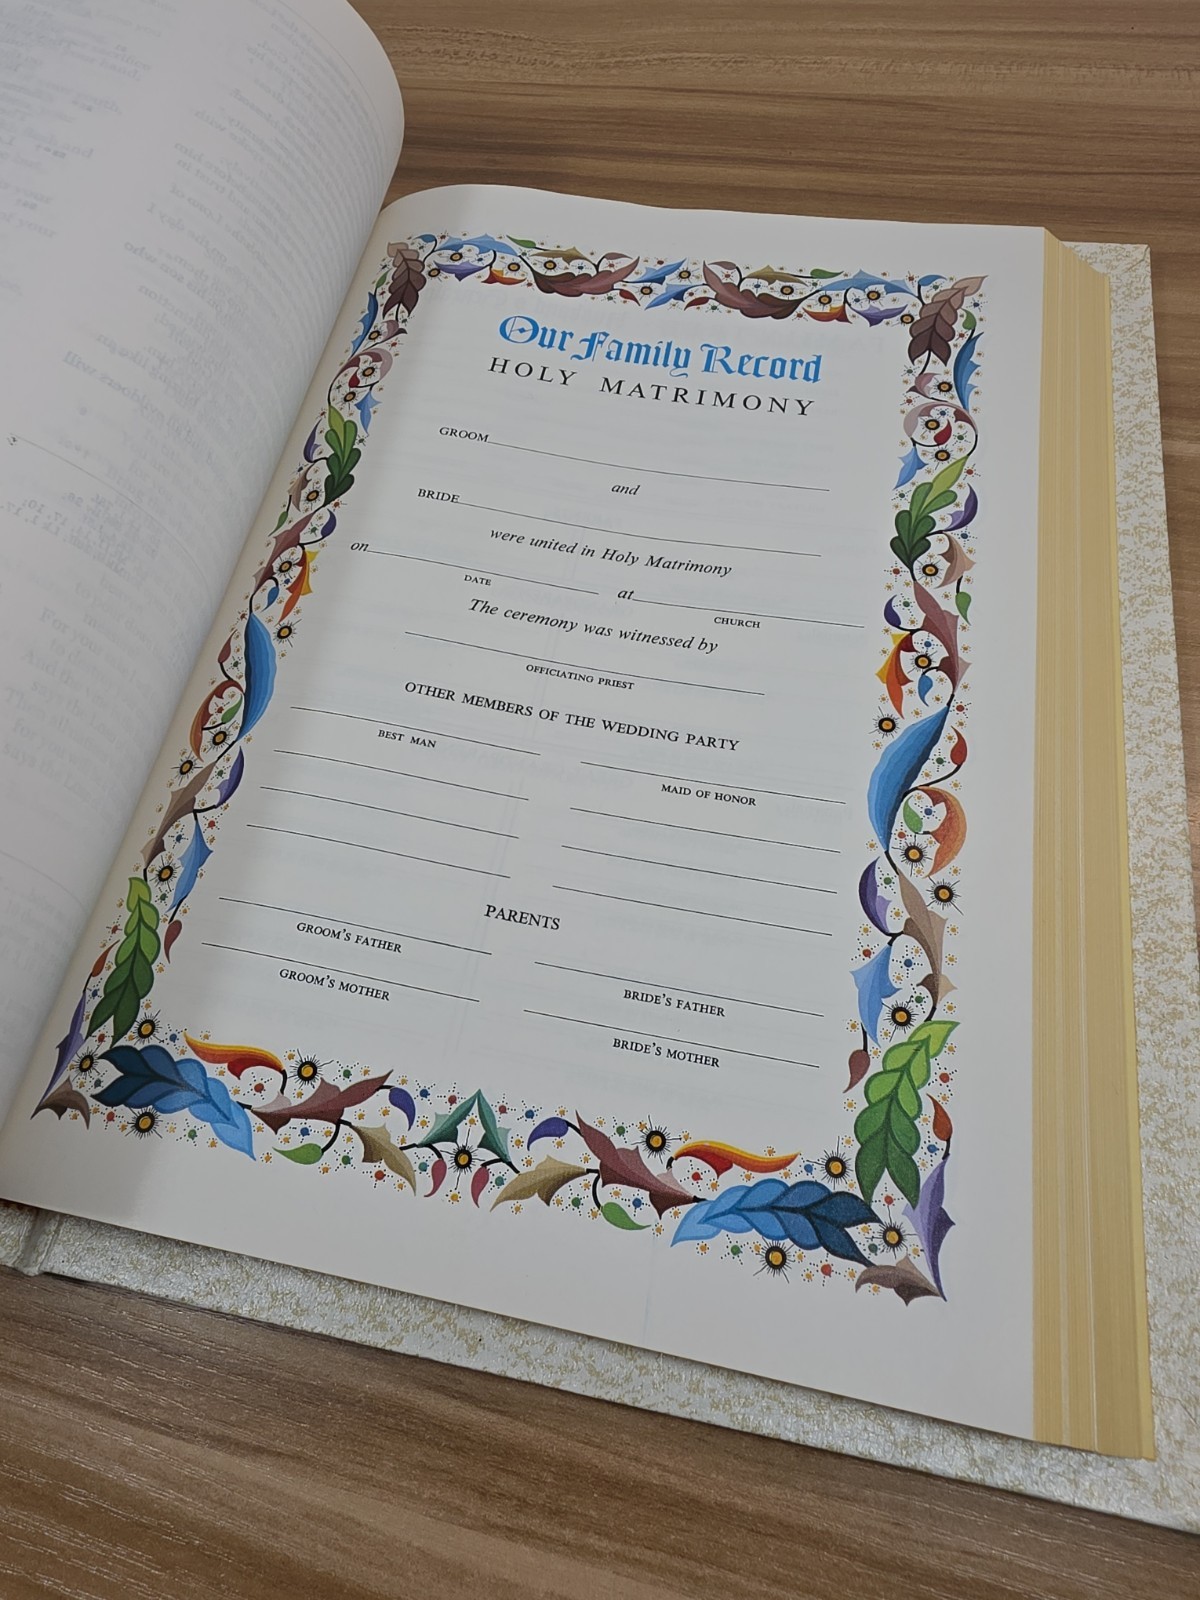 Our Family Record
HOLY MATRIMONY
GROOM
and
BRIDE
were united in Holy Matrimony
on at
DATE CHURCH
The ceremony was witnessed by
OFFICIATING PRIEST
OTHER MEMBERS OF THE WEDDING PARTY
BEST MAN MAID OF HONOR
PARENTS
GROOM'S FATHER BRIDE'S FATHER
GROOM'S MOTHER BRIDE'S MOTHER